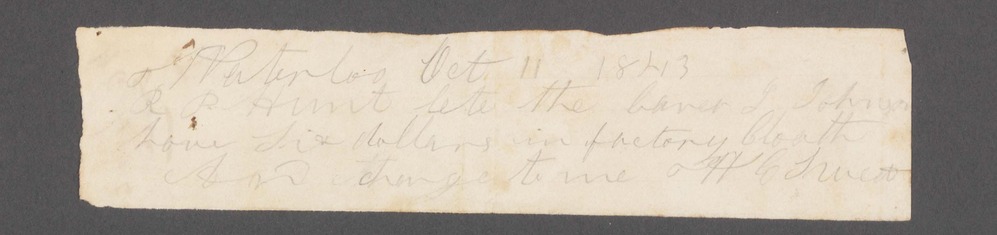 Waterloo Oct 11 1843
R P Hunt lete the barer J Johnson
have Six dollars in factory Cloath
And Charge to me W C